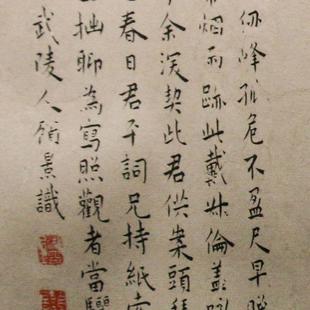 峰孤危不盈尺早
烟雨跡此戴叔倫盖
余深契此君供案頭
春日君平詞兄持紙索
拙聊為寫照觀者當
武陵人顧景識